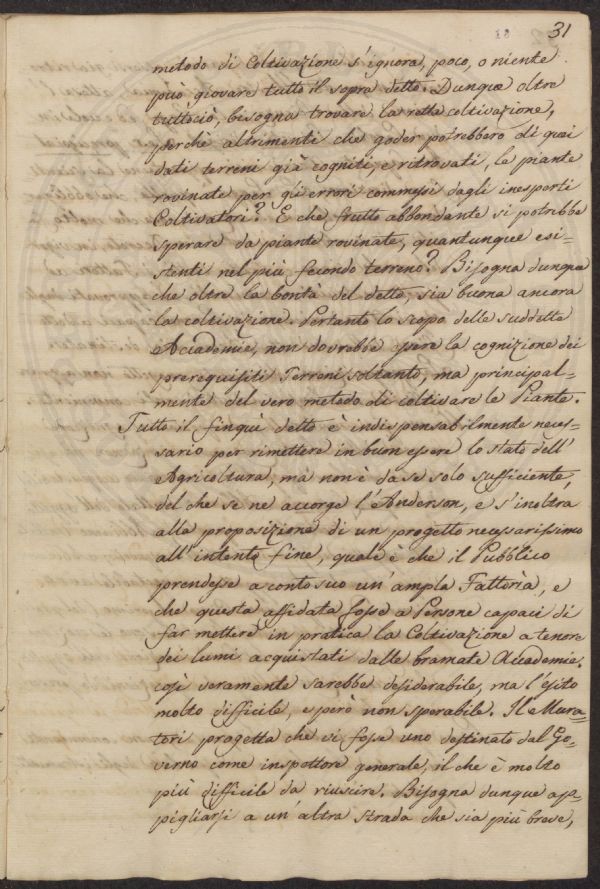 31
metodo di Coltivazione s'ignora, poco, o niente
può giovare tutto il sopra detto. Dunque oltre
tuttociò, bisogna trovare la retta coltivazione,
perchè altrimenti che goder potrebbero di quei
dati terreni già cogniti, e ritrovati, le piante
rovinate per gli errori commessi dagli inesperti
Coltivatori? E che frutto abbondante si potrebbe
sperare da piante rovinate, quantunque esi-
stenti nel più fecondo terreno? Bisogna dunque
che oltre la bontà del detto, sia buona ancora
la coltivazione. Pertanto lo scopo delle suddette
Accademie, non dovrebbe essere la cognizione dei
prerequisiti Terreni soltanto, ma principal-
mente del vero metodo di coltivare le Piante.
Tutto il finquì detto è indispensabilmente neces-
sario per rimettere in buon essere lo stato dell'
Agricoltura, ma non è da se solo sufficiente,
del che se ne accorge l'Anderson, e s'inoltra
alla proposizione di un progetto necessarissimo
all'intento fine, quale è che il Pubblico
prendesse a conto suo un'ampla Fattorìa, e
che questa affidata fosse a Persone capaci di
far mettere in pratica la Coltivazione a tenore
dei lumi acquistati dalle bramate Accademie.
così veramente sarebbe desiderabile, ma l'esito
molto difficile, e però non sperabile. Il Mura-
tori progetta che vi fosse uno destinato dal Go-
verno come inspettore generale, il che è molto
più difficile da riuscire. Bisogna dunque ap-
pigliarsi a un'altra strada che sia più breve,